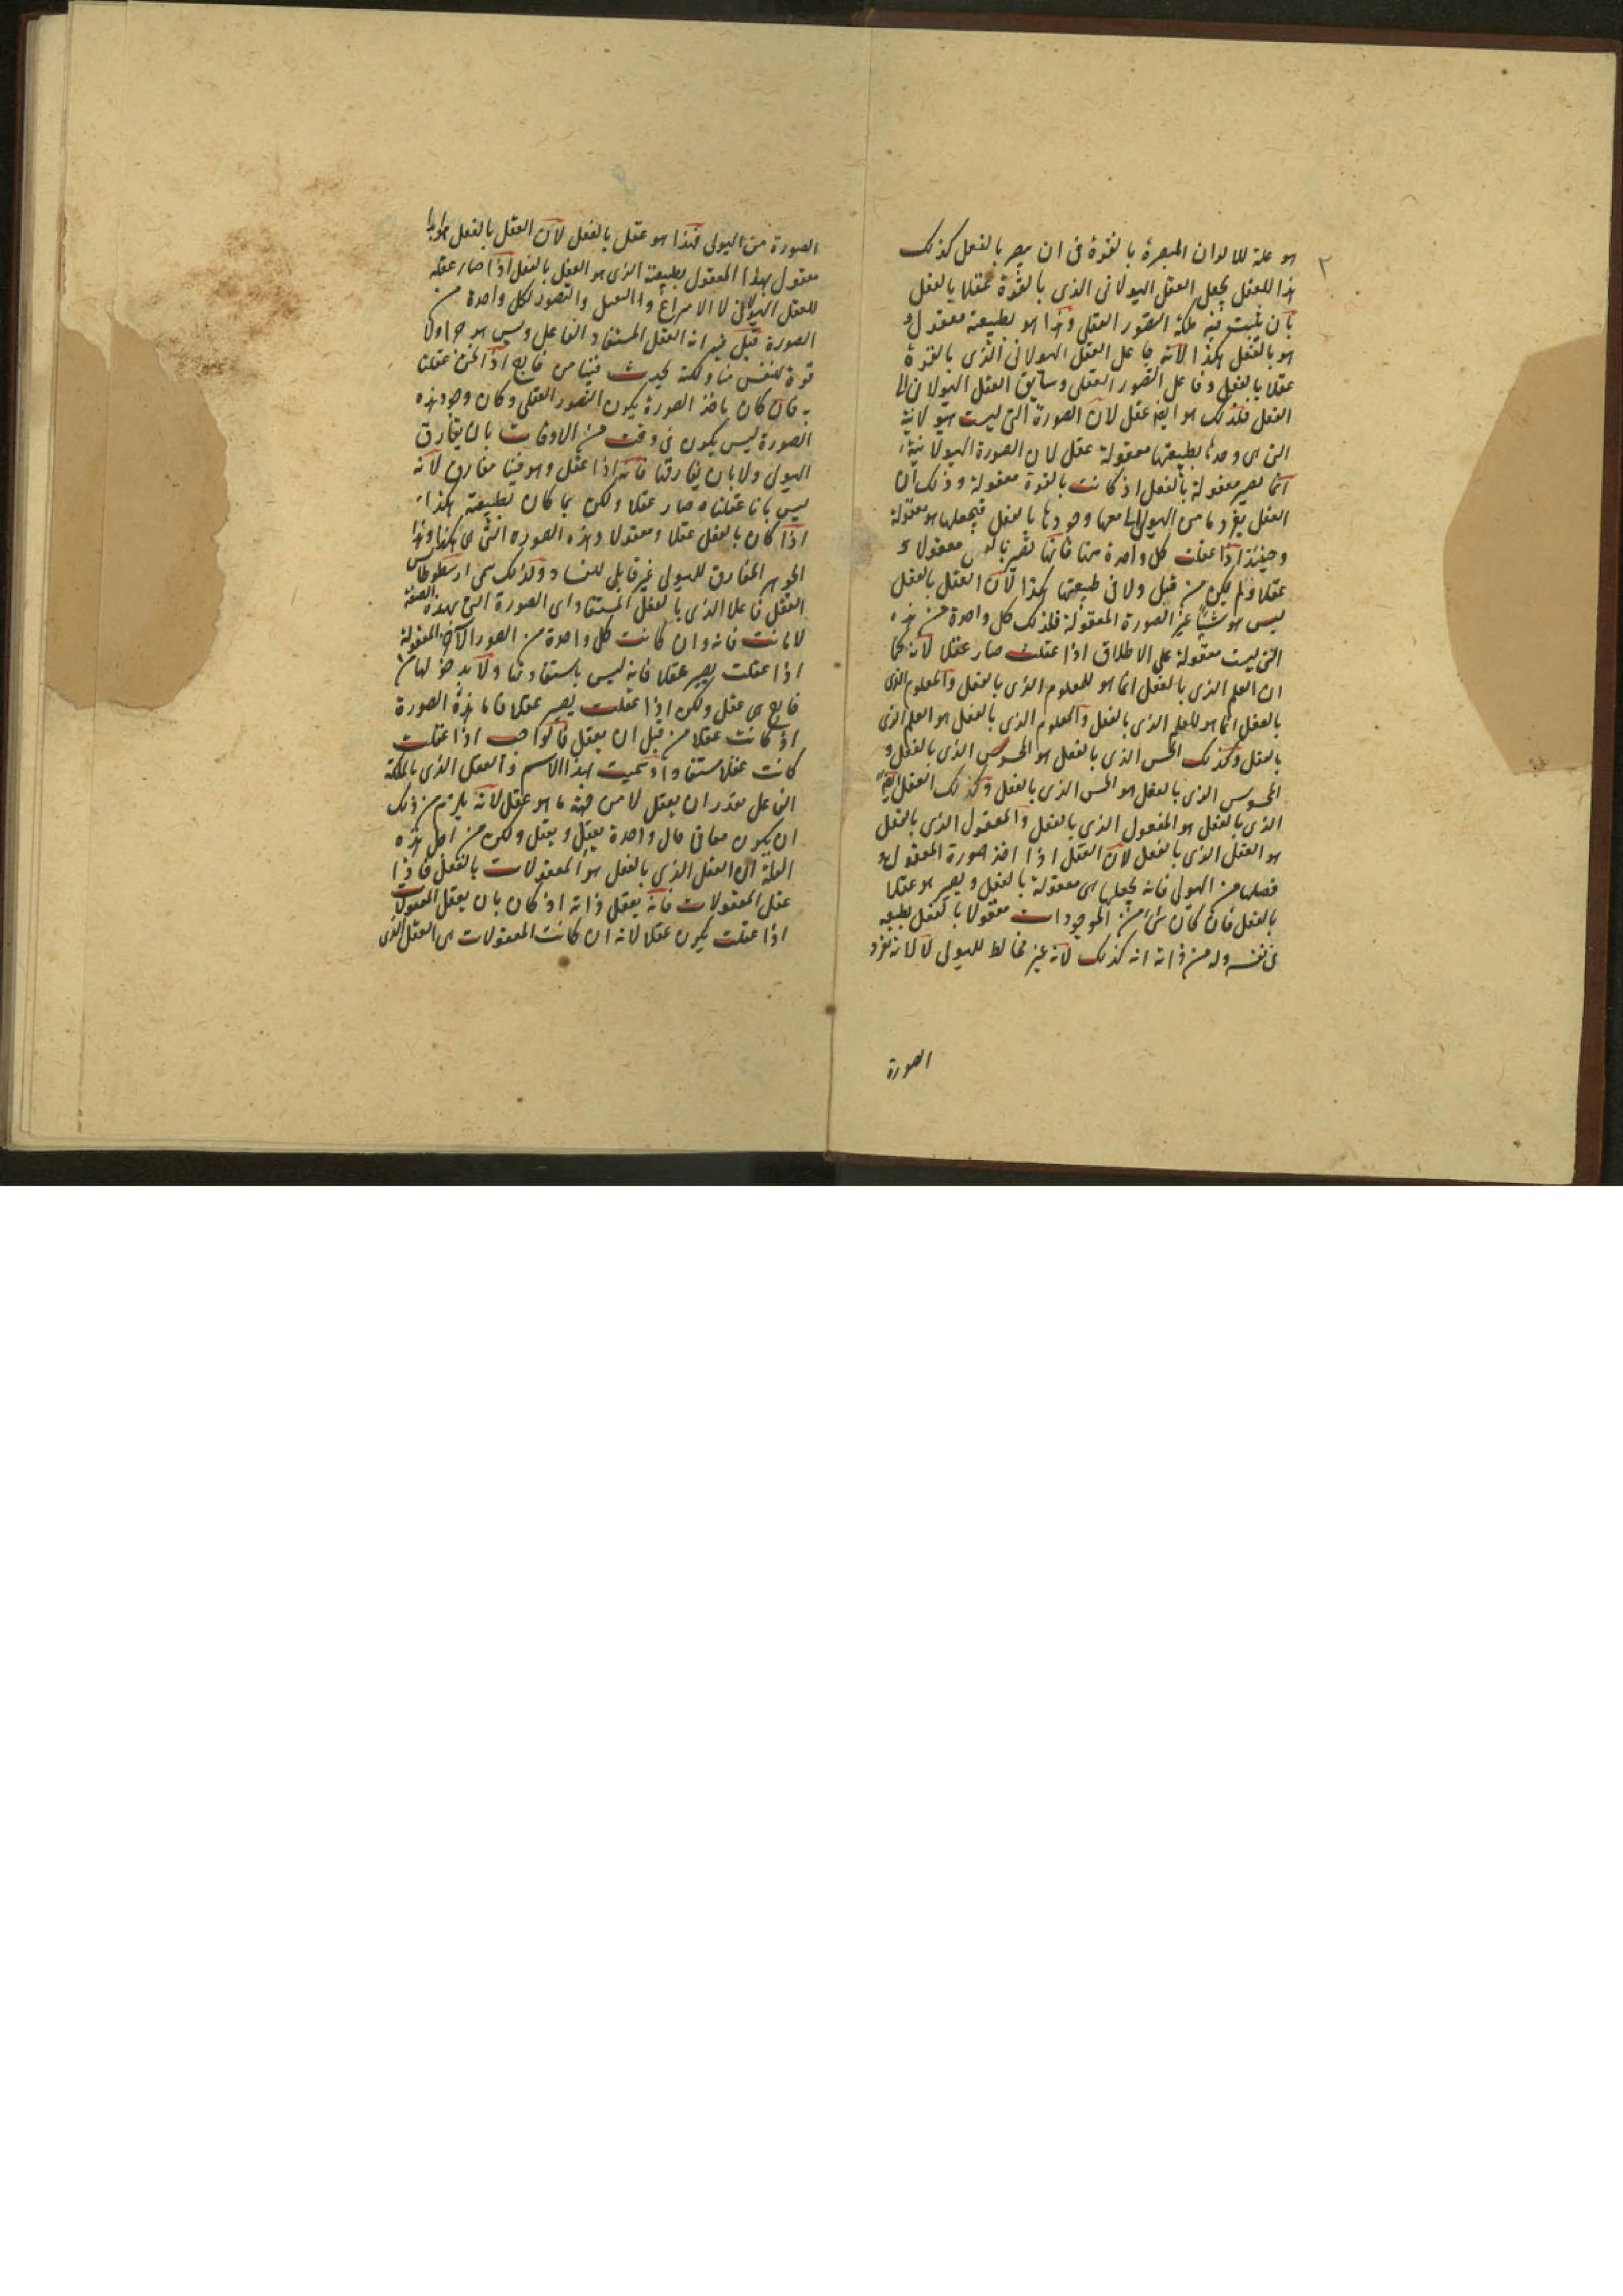 ٢
هو علة للالوان المبصرة بالقوة فى ان يصير بالفعل كذلك
هذا العقل يجعل العقل الهيولانى الذى بالقوة عقلا بالفعل
بان يثبت فيه ملكة التصور العقلى وهذا هو بطبيعته معقول و
هو بالفعل هكذا لانه فاعل العقل الهيولانى الذى بالقوة
عقلا بالفعل وفاعل التصور العقلى وسايق العقل الهيولانى الى
الفعل فلذلك هو ايضا عقل لان الصورة التى ليست هيولانية
التى هى وحدها بطبيعتها معقولة عقل لان الصورة الهيولانية
انما تصير معقولة بالفعل اذ كانت بالقوة معقولة وذلك ان
العقل يفردها من الهيولى التى معها وجودها بالفعل فيجعلها هو معقولة
وحينئذ اذا عقلت كل واحدة منها فانها تصير بالفعل معقولا و
عقلا ولم يكن من قبل ولا فى طبيعتها هكذا لان العقل بالفعل
ليس هو شيئا غير الصورة المعقولة فلذلك كل واحدة من هذه
التى ليست معقولة على الاطلاق اذا عقلت صار عقلا لانه كما
ان العلم الذى بالفعل انما هو للمعلوم الذى بالفعل والمعلوم الذى
بالفعل انما هو للعلم الذى بالفعل والمعلوم الذى بالفعل هو العلم الذى
بالفعل وكذلك الحس الذى بالفعل هو المحسوس الذى بالفعل و
المحسوس الذى بالفعل هو الحس الذى بالفعل وكذلك العقل ايضا
الذى بالفعل هو المعقول الذى بالفعل والمعقول الذى بالفعل
هو العقل الذى بالفعل لان العقل اذا اخذ صورة المعقول و
فصلها من الهيولى فانه يجعلها هى معقولة بالفعل ويصير هو عقلا
بالفعل فان كان شئ من الموجودات معقولا بالفعل بطبيعته
فى نفسه وله من ذاته انه كذلك لانه غير مخالط للهيولى لا لانه تفرد
الصورة
الصورة من الهيولى فهذا هو عقل بالفعل لان العقل بالفعل هو ابدا
معقول بهذا المعقول بطبيعته الذى هو العقل بالفعل اذا صار علة
للعقل الهيولانى لا الانتزاع والتصور لكل واحدة من
الصورة قيل فيه انه العقل المستفاد الفاعل وليس هو جزاولا
قوة للنفس منا ولكنه يحدث فينا من خارج اذا نحن عقلنا
به فان كان باخذ الصورة يكون التصور العقلى وكان وجود هذه
الصورة ليس يكون فى وقت من الاوقات بان يفارق
الهيولى ولا بان يفارقنا فانه اذا عقل وهو فينا مفارق لانه
ليس بانا عقلناه صار عقلا ولكن بما كان بطبيعته هكذا
اذا كان بالفعل عقلا ومعقولا وهذه الصورة التى هى هكذا وهذا
الجوهر المفارق للهيولى غير قابلى للفساد ولذلك سمى ارسطوطاليس
العقل فاعلا الذى بالفعل المستفاد اى الصورة التى بهذه الصفة
لا مائت فانه وان كانت كل واحدة من الصور الاخر المعقولة
اذا عقلت يصير عقلا فانه ليس باستفادتنا ولا بدخولها من
خارج هى عقل ولكن اذا عقلت يصير عقلا فاما هذه الصورة
اذ كانت عقلا من قبل ان يعقل فالواجب اذا عقلت
كانت عقلا مستفادا وسميت بهذا الاسم والعقل الذى بالملكة
الفاعل يقدر ان يعقل لا من جهة ما هو عقل لانه يلزم من ذلك
ان يكون معا فى حال واحدة يعقل ويعقل ولكن من اجل هذه
العلة ان العقل الذى بالفعل هو المعقولات بالفعل فاذا
عقل المعقولات فانه يعقل ذاته اذ كان بان يعقل المعقولات
اذا عقلت يكون عقلا لانه ان كانت المعقولات هى العقل الذى